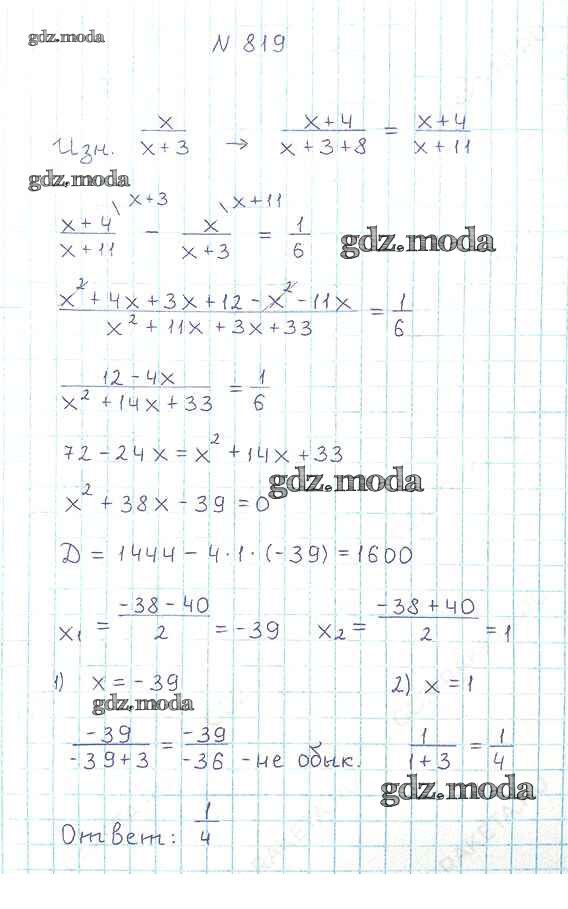 gdz.moda
N 819
Изн. x/(x+3) → (x+4)/(x+3+8) = (x+4)/(x+11)
gdz.moda
(x+4)/(x+11) \x+3 − x/(x+3) \x+11 = 1/6
gdz.moda
(x² + 4x + 3x + 12 − x² − 11x)/(x² + 11x + 3x + 33) = 1/6
(12 − 4x)/(x² + 14x + 33) = 1/6
72 − 24x = x² + 14x + 33
gdz.moda
x² + 38x − 39 = 0
D = 1444 − 4·1·(−39) = 1600
x₁ = (−38 − 40)/2 = −39 x₂ = (−38 + 40)/2 = 1
1) x = −39 2) x = 1
gdz.moda
−39/(−39+3) = −39/−36 - не обык. 1/(1+3) = 1/4
gdz.moda
Ответ: 1/4